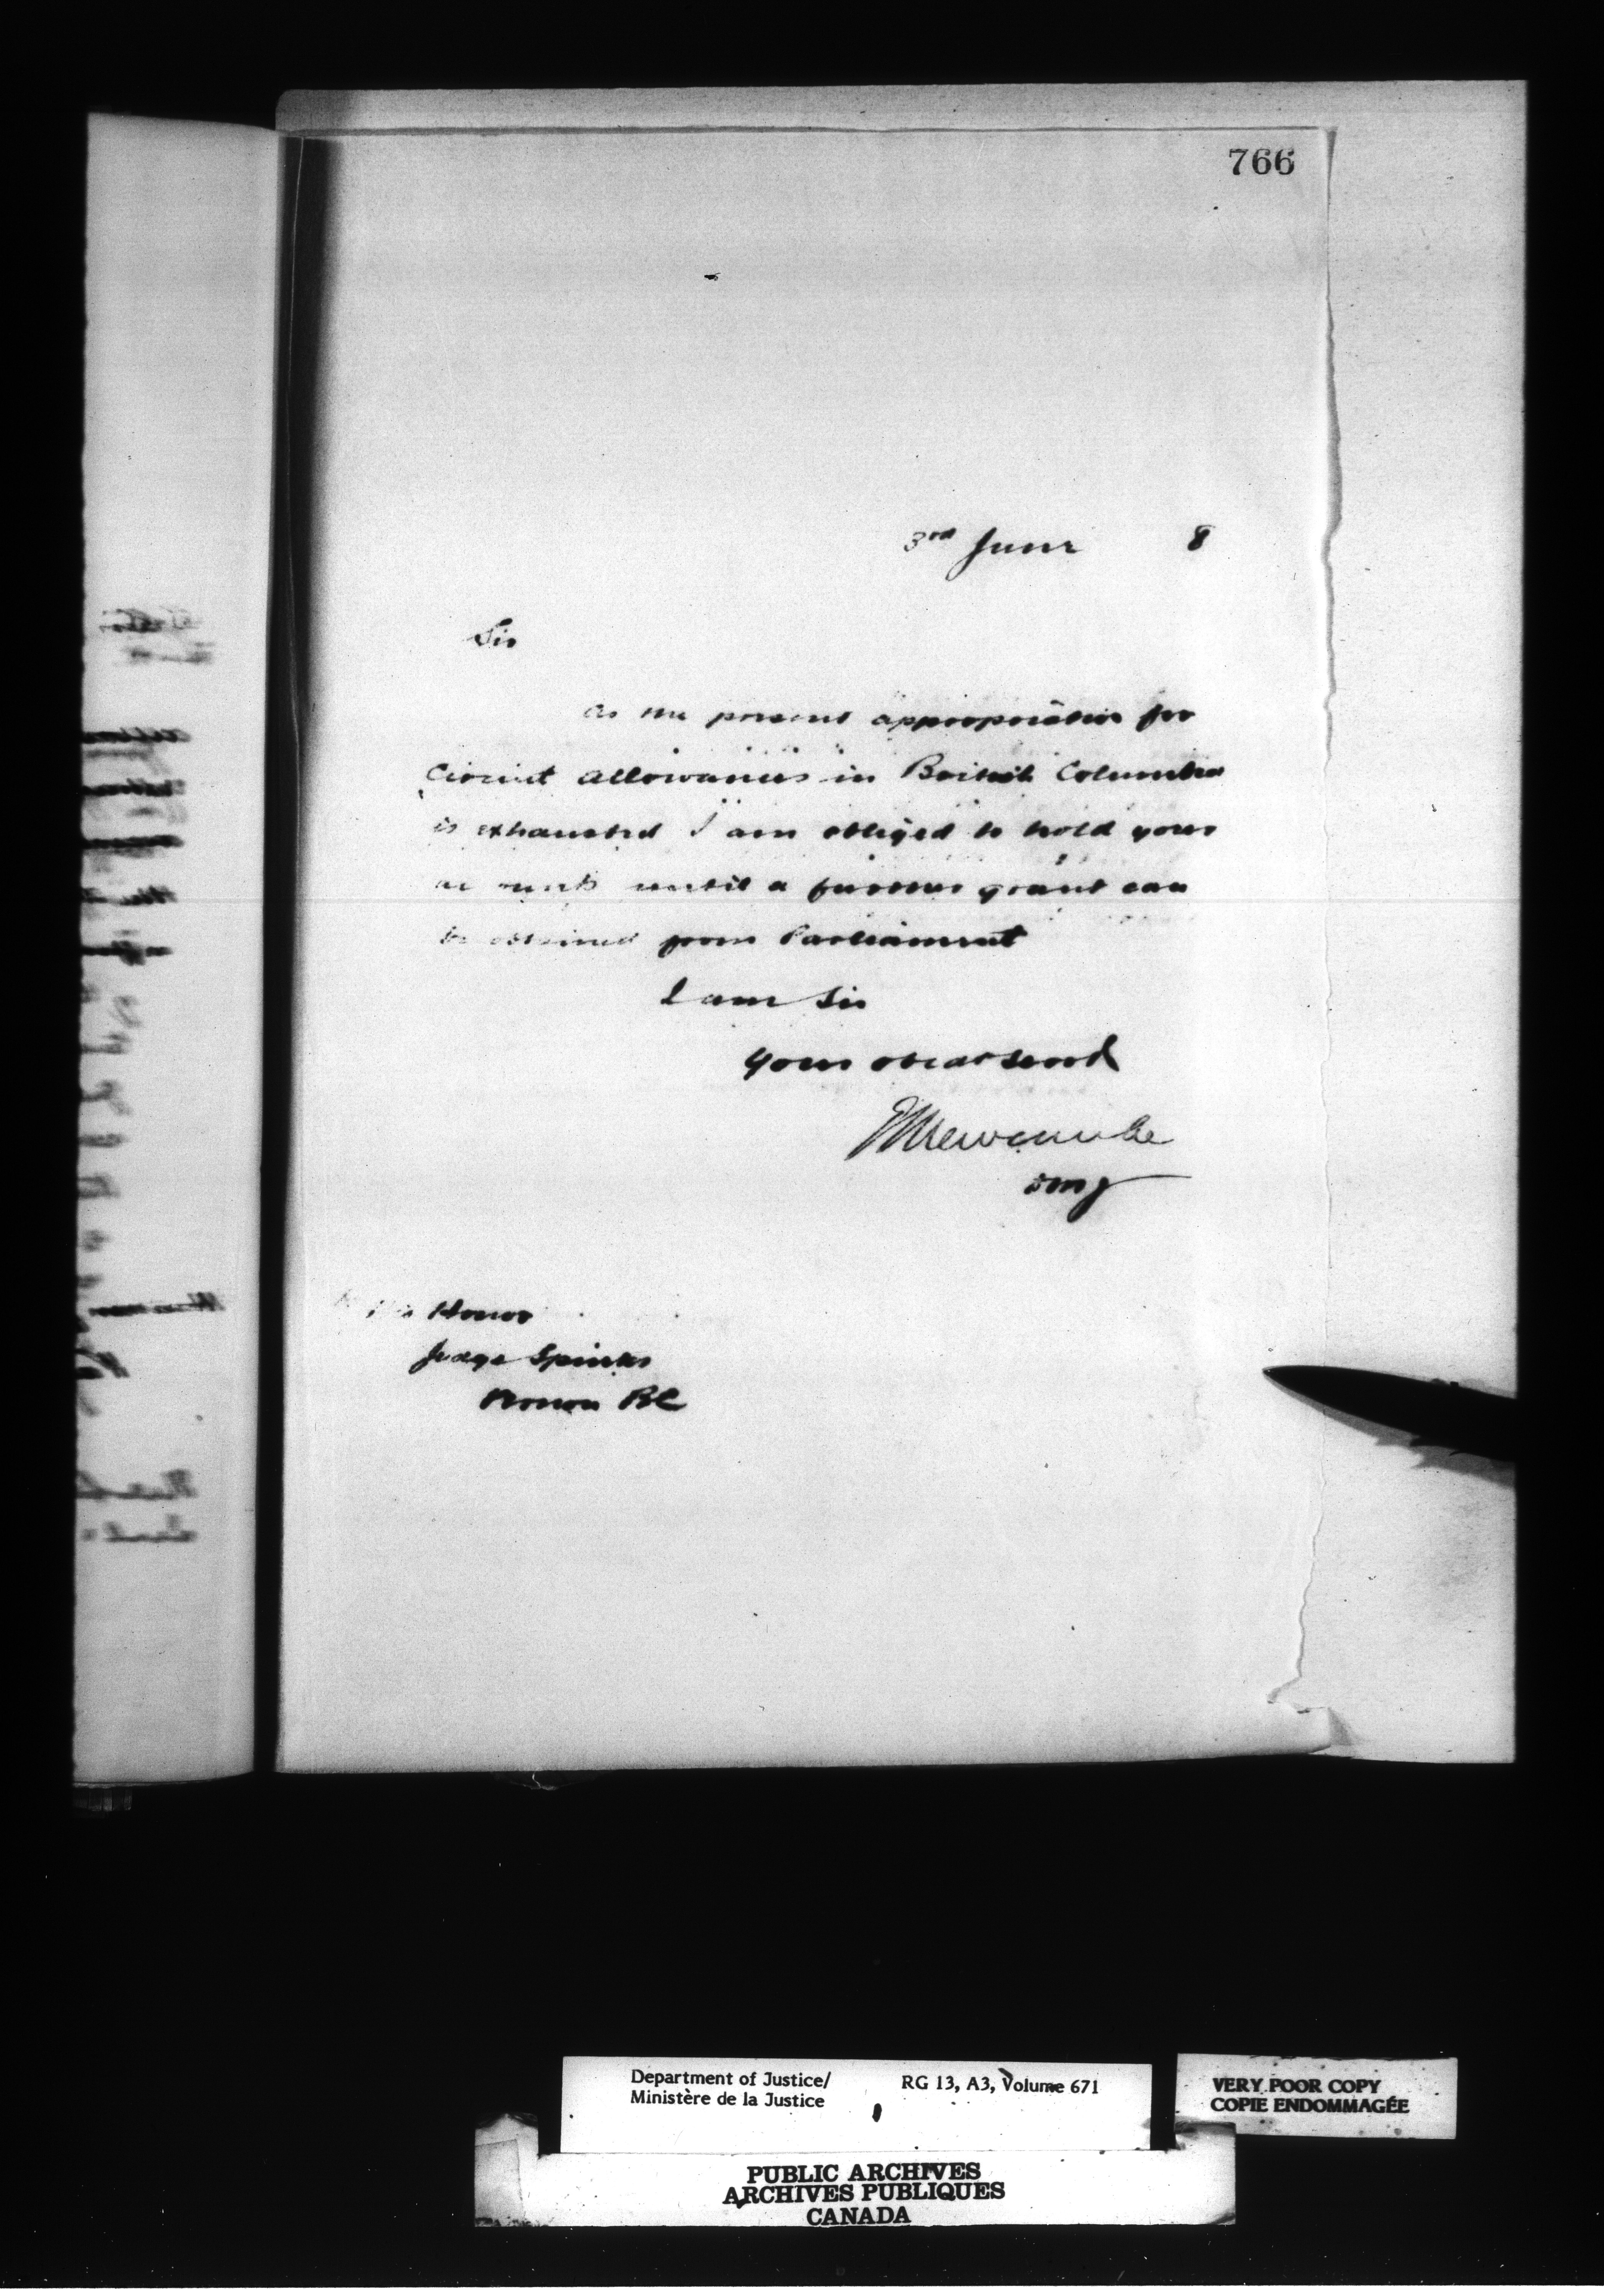 766
3rd June 8
Sir
As the present appropriation for
Circuit allowances in British Columbia
is exhausted I am obliged to hold yours
until a further grant can
be obtained from Parliament
I am Sir
Your obedt servt
E L Newcombe
DMJ
His Honor
Judge Spinks
Vernon BC
Department of Justice/ RG 13, A3, Volume 671
Ministère de la Justice
VERY POOR COPY
COPIE ENDOMMAGÉE
PUBLIC ARCHIVES
ARCHIVES PUBLIQUES
CANADA